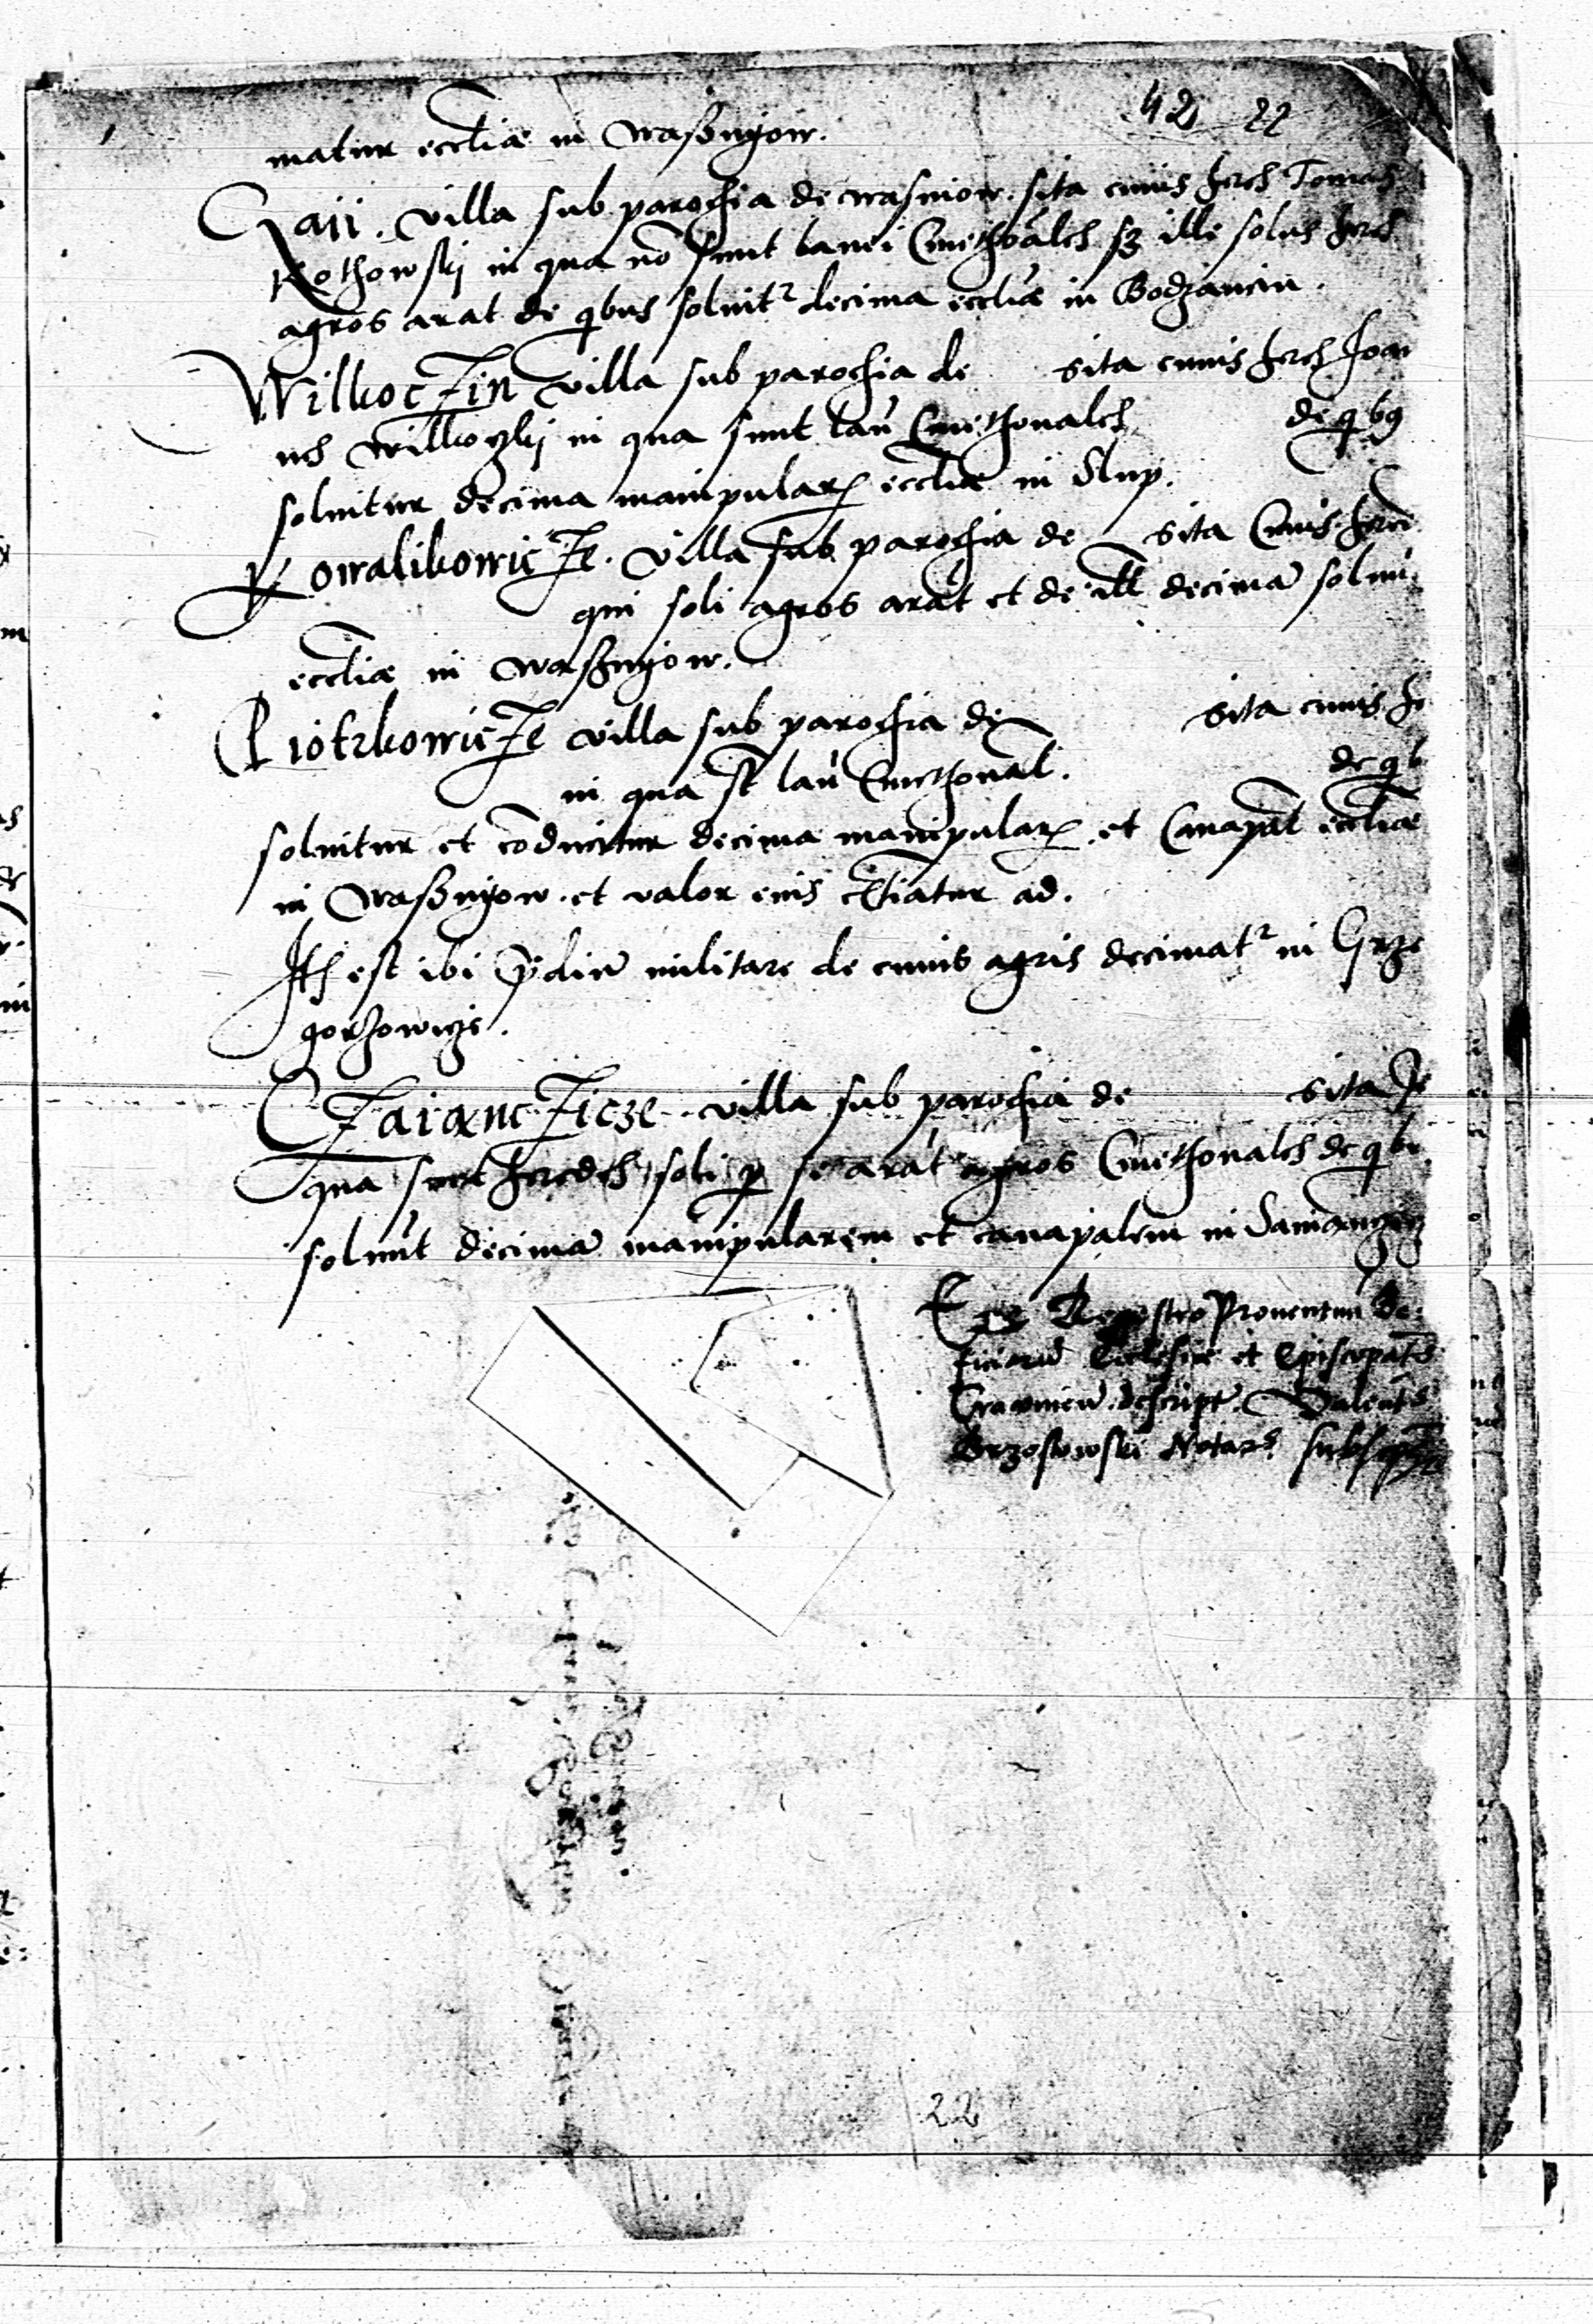 42 22
matur ecctiæ in Waßnyow.
Gaii. villa sub parochia de wasniow. sita cuius heres Tomas
Kothowskj in qua nō sunt lanei Cmethonales sz ille solus heres
agros arat de qbus soluitr decima eccliæ in Bodzanciu.
Wilkoczin villa sub parochia de sita cuius heres Joan
nes Wilkoczkj in qua sunt lan̄ Cmethonales de qbg
soluitur decima manipular ecctiæ in Slup.
Kowalikowicze. villa sub parochia de sita Cuius hered
qui soli agros arāt et de ill decimā soluū
ecctiæ in Waßnyow.
Piotrkowicze villa sub parochia de sita cuius he
in qua st lan̄ Cmethonal. de qb
soluitur et cōducitur decima manipular. et Canapal ecctiæ
in Waßnyow. et valor eius ctiatur ad.
Itē est ibi p̄diū militare de cuius agris decimatr in Grze
gorzowicze.
Czaianczicze. villa sub parochia de sita In
qua sunt heredes soli p se arāt agros Cmethonales de qbe
soluūt decimā manipularem et canapalem in
Ex Regestro Prouentuū Be:
ficiorū Ecclesiæ et Episcopats
Cracouien. descript. Valents
Brzostowski Notars subscpsit
22